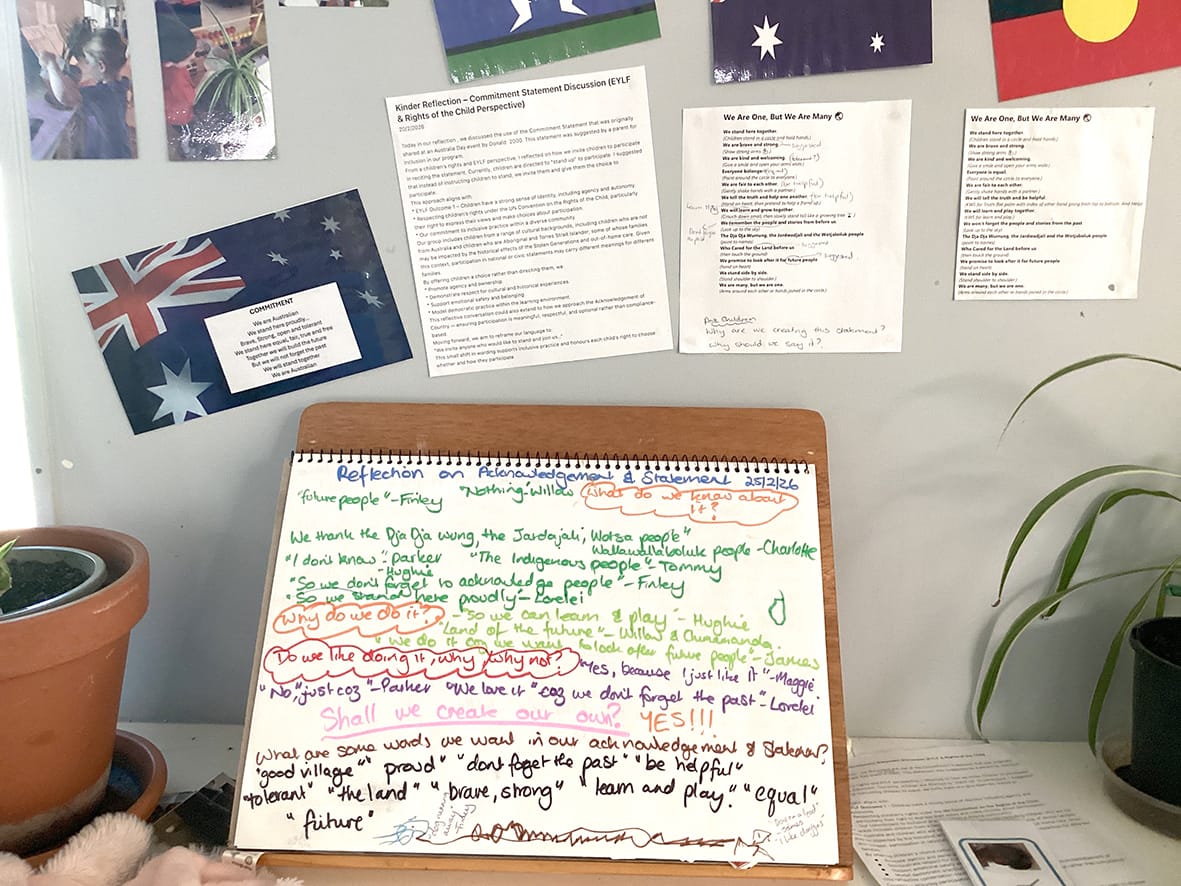 Kinder Reflection – Commitment Statement Discussion (EYLF
& Rights of the Child Perspective)
20/2/2026
Today in our reflection , we discussed the use of the Commitment Statement that was originally
shared at an Australia Day event by Donald 2000. This statement was suggested by a parent for
inclusion in our program.
From a children's rights and EYLF perspective, I reflected on how we invite children to participate
in reciting the statement. Currently, children are directed to "stand up" to participate. I suggested
that instead of instructing children to stand, we invite them and give them the choice to
participate.
This approach aligns with:
* EYLF Outcome 1 – Children have a strong sense of identity, including agency and autonomy.
* Respecting children's rights under the UN Convention on the Rights of the Child, particularly
their right to express their views and make choices about participation.
* Our commitment to inclusive practice within a diverse community.
Our group includes children from a range of cultural backgrounds, including children who are not
from Australia and children who are Aboriginal and Torres Strait Islander, some of whose families
may be impacted by the historical effects of the Stolen Generations and out-of-home care. Given
this context, participation in national or civic statements may carry different meanings for different
families.
By offering children a choice rather than directing them, we:
* Promote agency and ownership.
* Demonstrate respect for cultural and historical experiences.
* Support emotional safety and belonging.
* Model democratic practice within the learning environment.
This reflective conversation could also extend to how we approach the Acknowledgement of
Country — ensuring participation is meaningful, respectful, and optional rather than compliance-
based.
Moving forward, we aim to reframe our language to:
"We invite anyone who would like to stand and join us..."
This small shift in wording supports inclusive practice and honours each child's right to choose
whether and how they participate.
We Are One, But We Are Many
We stand here together.
(Children stand in a circle and hold hands.)
We are brave and strong. suggested
(Show strong arms.)
We are kind and welcoming.
(Give a smile and open your arms wide.)
Everyone belongs.
(Point around the circle to everyone.)
We are fair to each other. (be helpful)
(Gently shake hands with a partner.)
We tell the truth and help one another. (be helpful)
(Hand on heart, then pretend to help a friend up.)
We will learn and grow together.
(Crouch down small, then slowly stand tall like a growing tree.)
We remember the people and stories from before us.
(Look up to the sky)
The Dja Dja Wurrung, the Jardwadjali and the Wotjobaluk people
(point to names)
Who Cared for the Land before us
(then touch the ground)
We promise to look after it for future people
(hand on heart)
We stand side by side.
(Stand shoulder to shoulder.)
We are many, but we are one.
(Arms around each other or hands joined in the circle.)
Ask Children
Why are we creating this statement?
why should we say it?
We Are One, But We Are Many
We stand here together.
(Children stand in a circle and hold hands.)
We are brave and strong.
(Show strong arms.)
We are kind and welcoming.
(Give a smile and open your arms wide.)
Everyone is equal.
(Point around the circle to everyone.)
We are fair to each other.
(Gently shake hands with a partner.)
We will tell the truth and be helpful.
We will learn and play together.
We won't forget the people and stories from the past
(Look up to the sky)
The Dja Dja Wurrung, the Jardwadjali and the Wotjobaluk people
(point to names)
Who Cared for the Land before us
(then touch the ground)
We promise to look after it for future people
(hand on heart)
We stand side by side.
(Stand shoulder to shoulder.)
We are many, but we are one.
(Arms around each other or hands joined in the circle.)
COMMITMENT
We are Australian
We stand here proudly...
Brave, Strong, open and tolerant
We stand here equal, fair, true and free
Together we will build the future
But we will not forget the past
We will stand together
We are Australian
Reflection on Acknowledgement & Statement 25/2/26
"future people" - Finley "Nothing" - Willow What do we know about
it?
We thank the Dja Dja wung, the Jardajali, Wotsa people"
Wallawallaboluk people - Charlotte
"I don't know" - Parker "The Indigenous people" - Tommy
- Hughie
"So we don't forget to acknowledge people" - Finley
"So we stand here proudly" - Lorelei
Why do we do it? - "So we can learn & play" - Hughie
"Land of the future" - Willow & Chimamanda.
"we do it coz we want to look after future people" - James
Do we like doing it, why, why not? "Yes, because I just like it" - Maggie
"No, "just coz" - Parker "We love it" "coz we don't forget the past" - Lorelei
Shall we create our own? YES!!!
What are some words we want in our acknowledgement & Statement?
"good village" "proud" "dont foget the past" "be helpful"
"tolerant" "the land" "brave, strong" "learn and play" "equal"
"future"